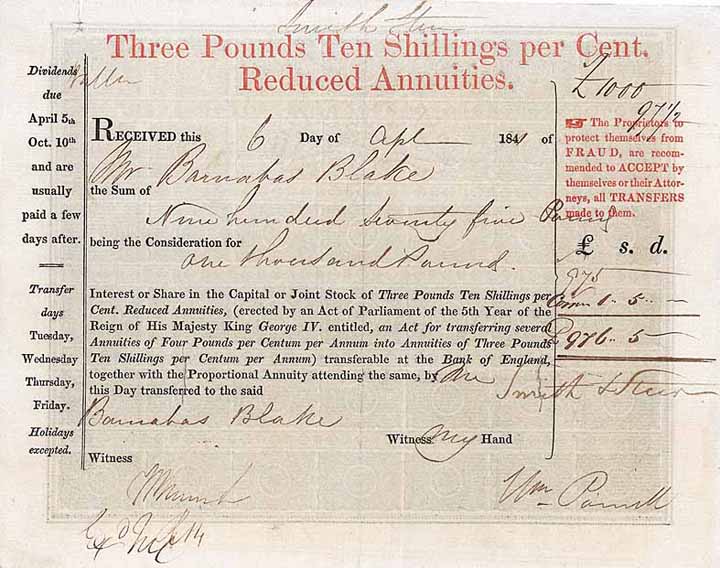 Three Pounds Ten Shillings per Cent.
Reduced Annuities.
Dividends
due
April 5th
Oct. 10th
and are
usually
paid a few
days after.
Transfer
days
Tuesday,
Wednesday
Thursday,
Friday.
Holidays
excepted.
RECEIVED this 6 Day of Apl 184 of
Mr Barnabas Blake
the Sum of
Nine hundred seventy five Pounds
being the Consideration for
One thousand Pounds.
Interest or Share in the Capital or Joint Stock of Three Pounds Ten Shillings per
Cent. Reduced Annuities, (erected by an Act of Parliament of the 5th Year of the
Reign of His Majesty King George IV. entitled, an Act for transferring several
Annuities of Four Pounds per Centum per Annum into Annuities of Three Pounds
Ten Shillings per Centum per Annum) transferable at the Bank of England,
together with the Proportional Annuity attending the same, by Me
this Day transferred to the said
Barnabas Blake
Witness My Hand
Witness
Wm Parnell
£1000
97 1/2
☞ The Proprietors to
protect themselves from
FRAUD, are recom-
mended to ACCEPT by
themselves or their Attor-
neys, all TRANSFERS
made to them.
£ s. d.
975
Comn 1 - 5 - -
£ 976 - 5 -
Smith &